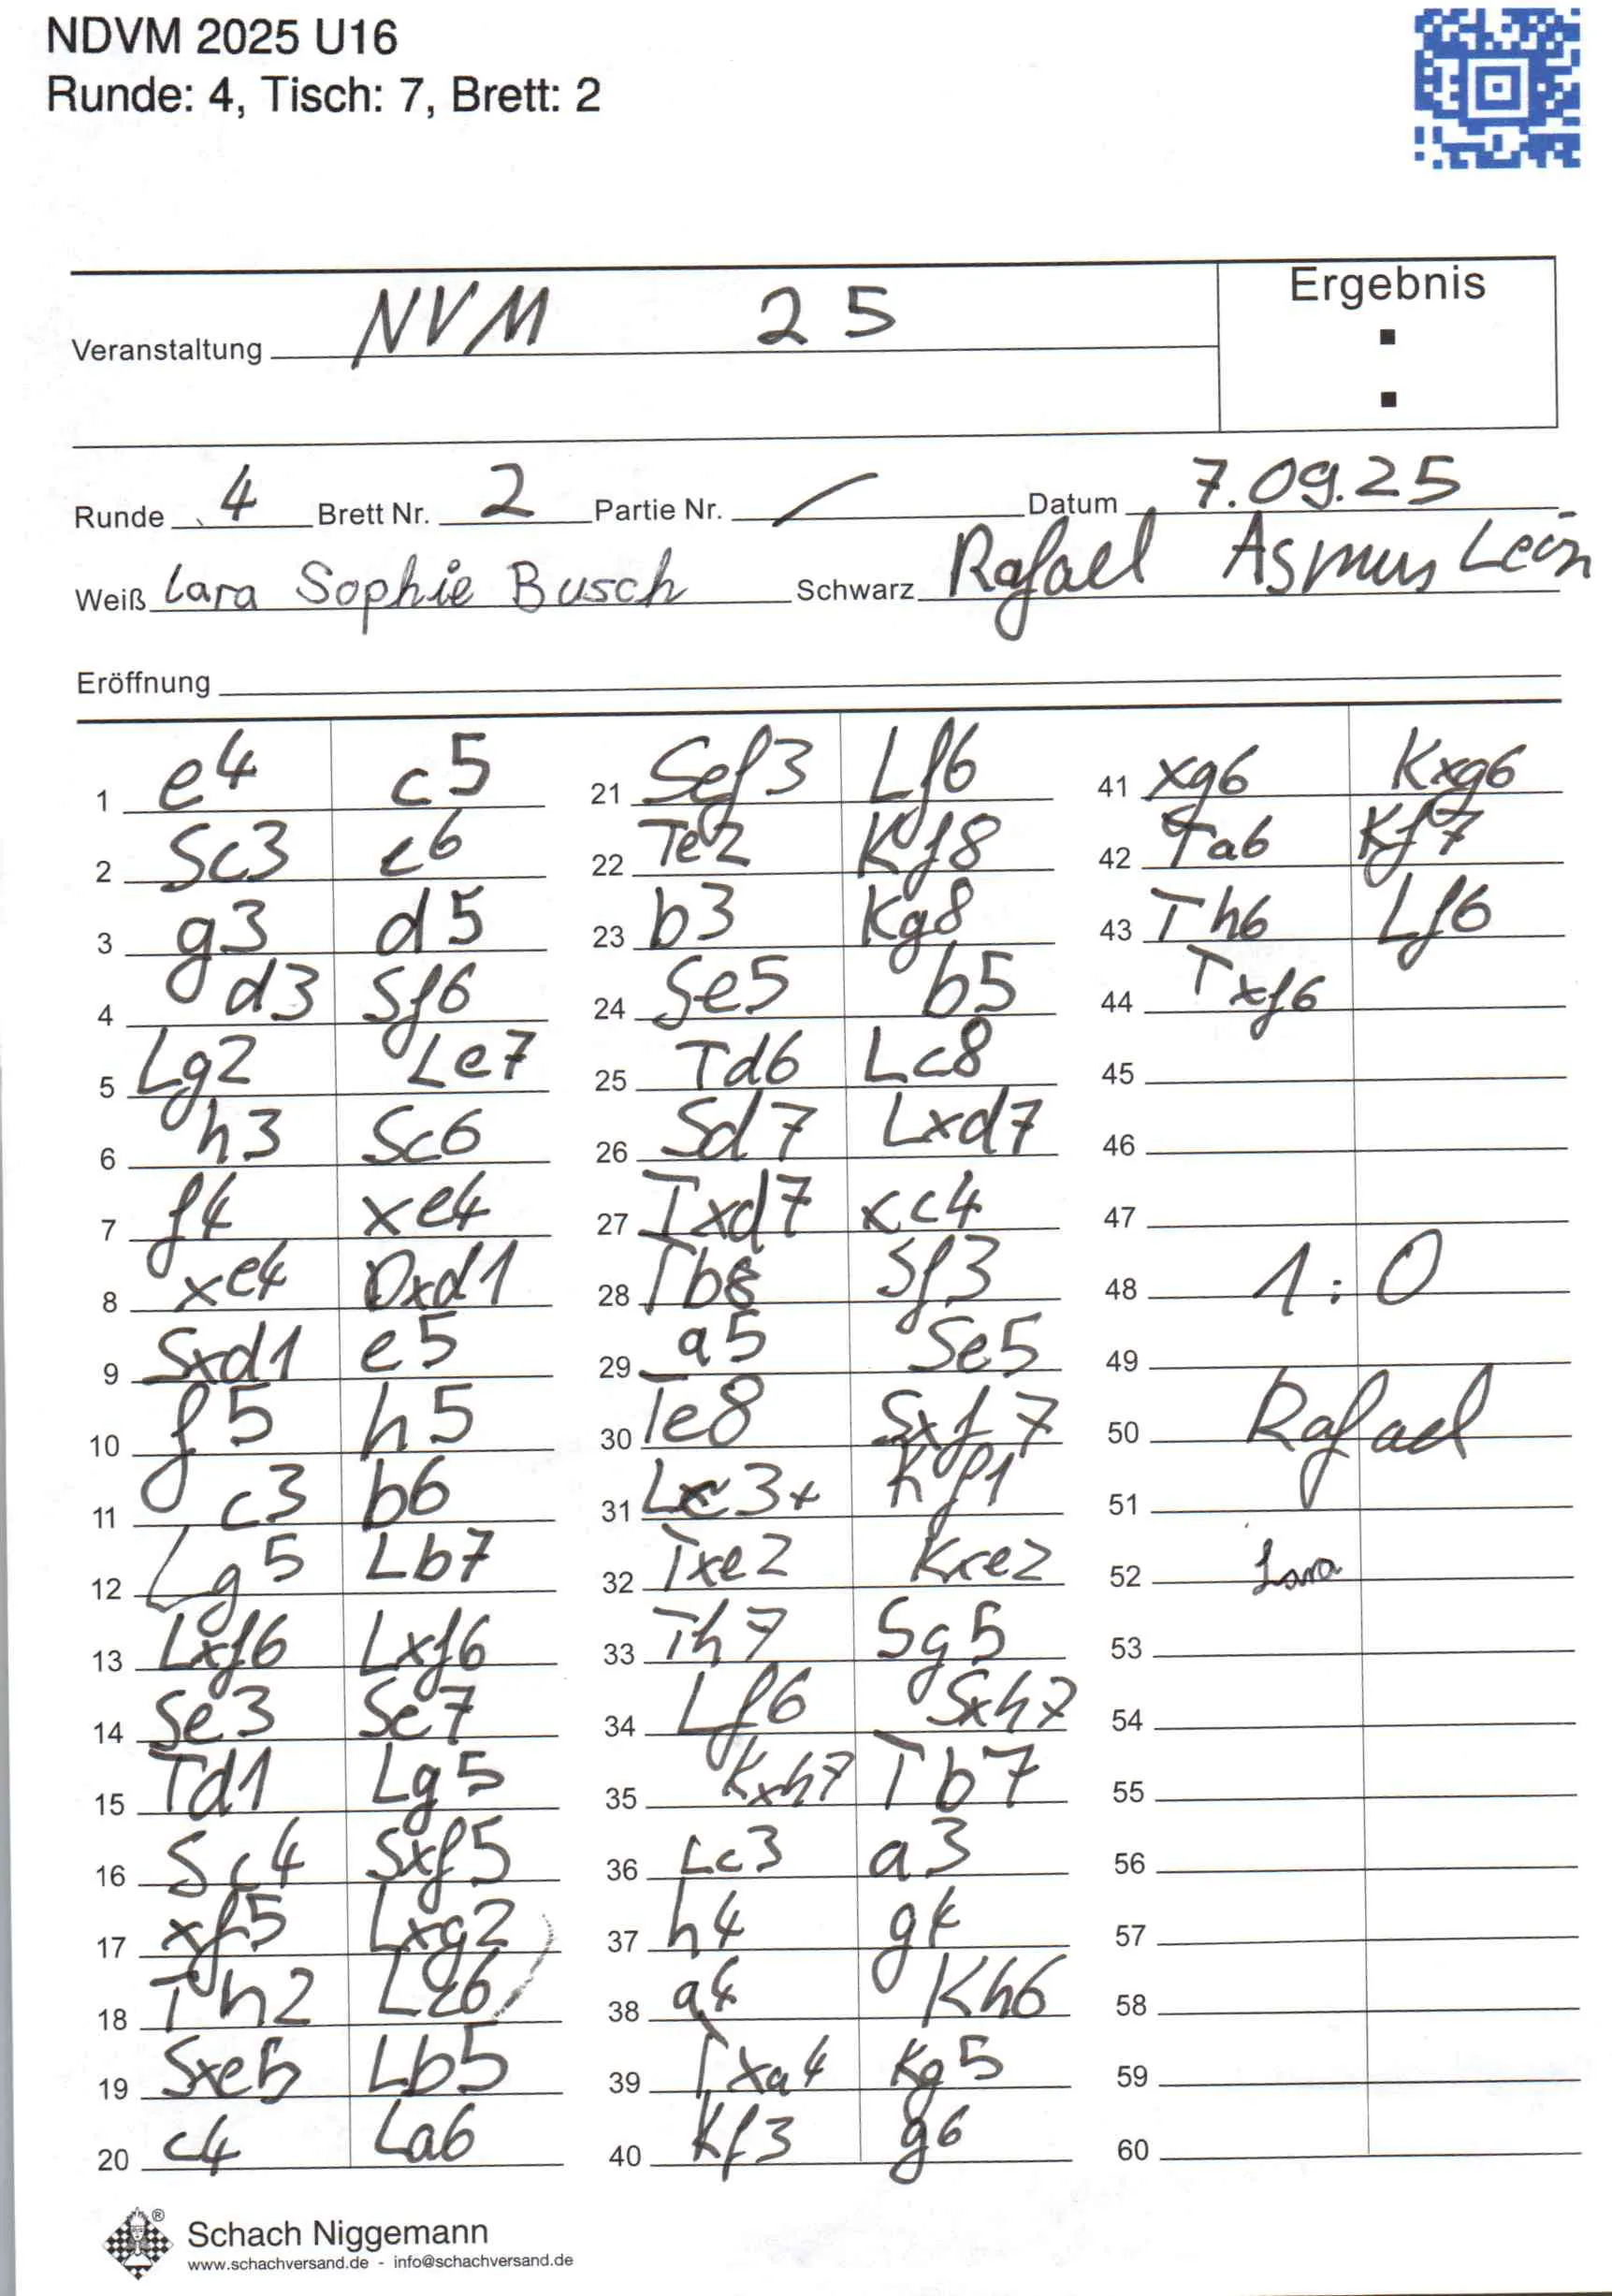 NDVM 2025 U16
Runde: 4, Tisch: 7, Brett: 2
Ergebnis
Veranstaltung NVM 25
Runde 4 Brett Nr. 2 Partie Nr. / Datum 7.09.25
Weiß Lara Sophie Busch Schwarz Rafael Asmus León
Eröffnung
1 e4 c5
2 Sc3 e6
3 g3 d5
4 d3 Sf6
5 Lg2 Le7
6 h3 Sc6
7 f4 xe4
8 xe4 Dxd1
9 Sxd1 e5
10 f5 h5
11 c3 b6
12 Lg5 Lb7
13 Lxf6 Lxf6
14 Se3 Se7
15 Td1 Lg5
16 Sc4 Sxf5
17 xf5 Lxg2
18 Th2 Lc6
19 Sxe5 Lb5
20 c4 La6
21 Sef3 Lf6
22 Te2 Kf8
23 b3 Kg8
24 Se5 b5
25 Td6 Lc8
26 Sd7 Lxd7
27 Txd7 xc4
28 Tb8 Sf3
29 a5 Se5
30 Te8 Sxf7
31 Lc3+ Kf1
32 Txe2 Kxe2
33 Th7 Sg5
34 Lf6 Sxh7
35 Kxh7 Tb7
36 Lc3 a3
37 h4 g4
38 a4 Kh6
39 Txa4 Kg5
40 Kf3 g6
41 xg6 Kxg6
42 Ta6 Kf7
43 Th6 Lf6
44 Txf6
45
46
47
48 1:0
49
50 Rafael
51
52 Lara
53
54
55
56
57
58
59
60
® Schach Niggemann
www.schachversand.de - info@schachversand.de